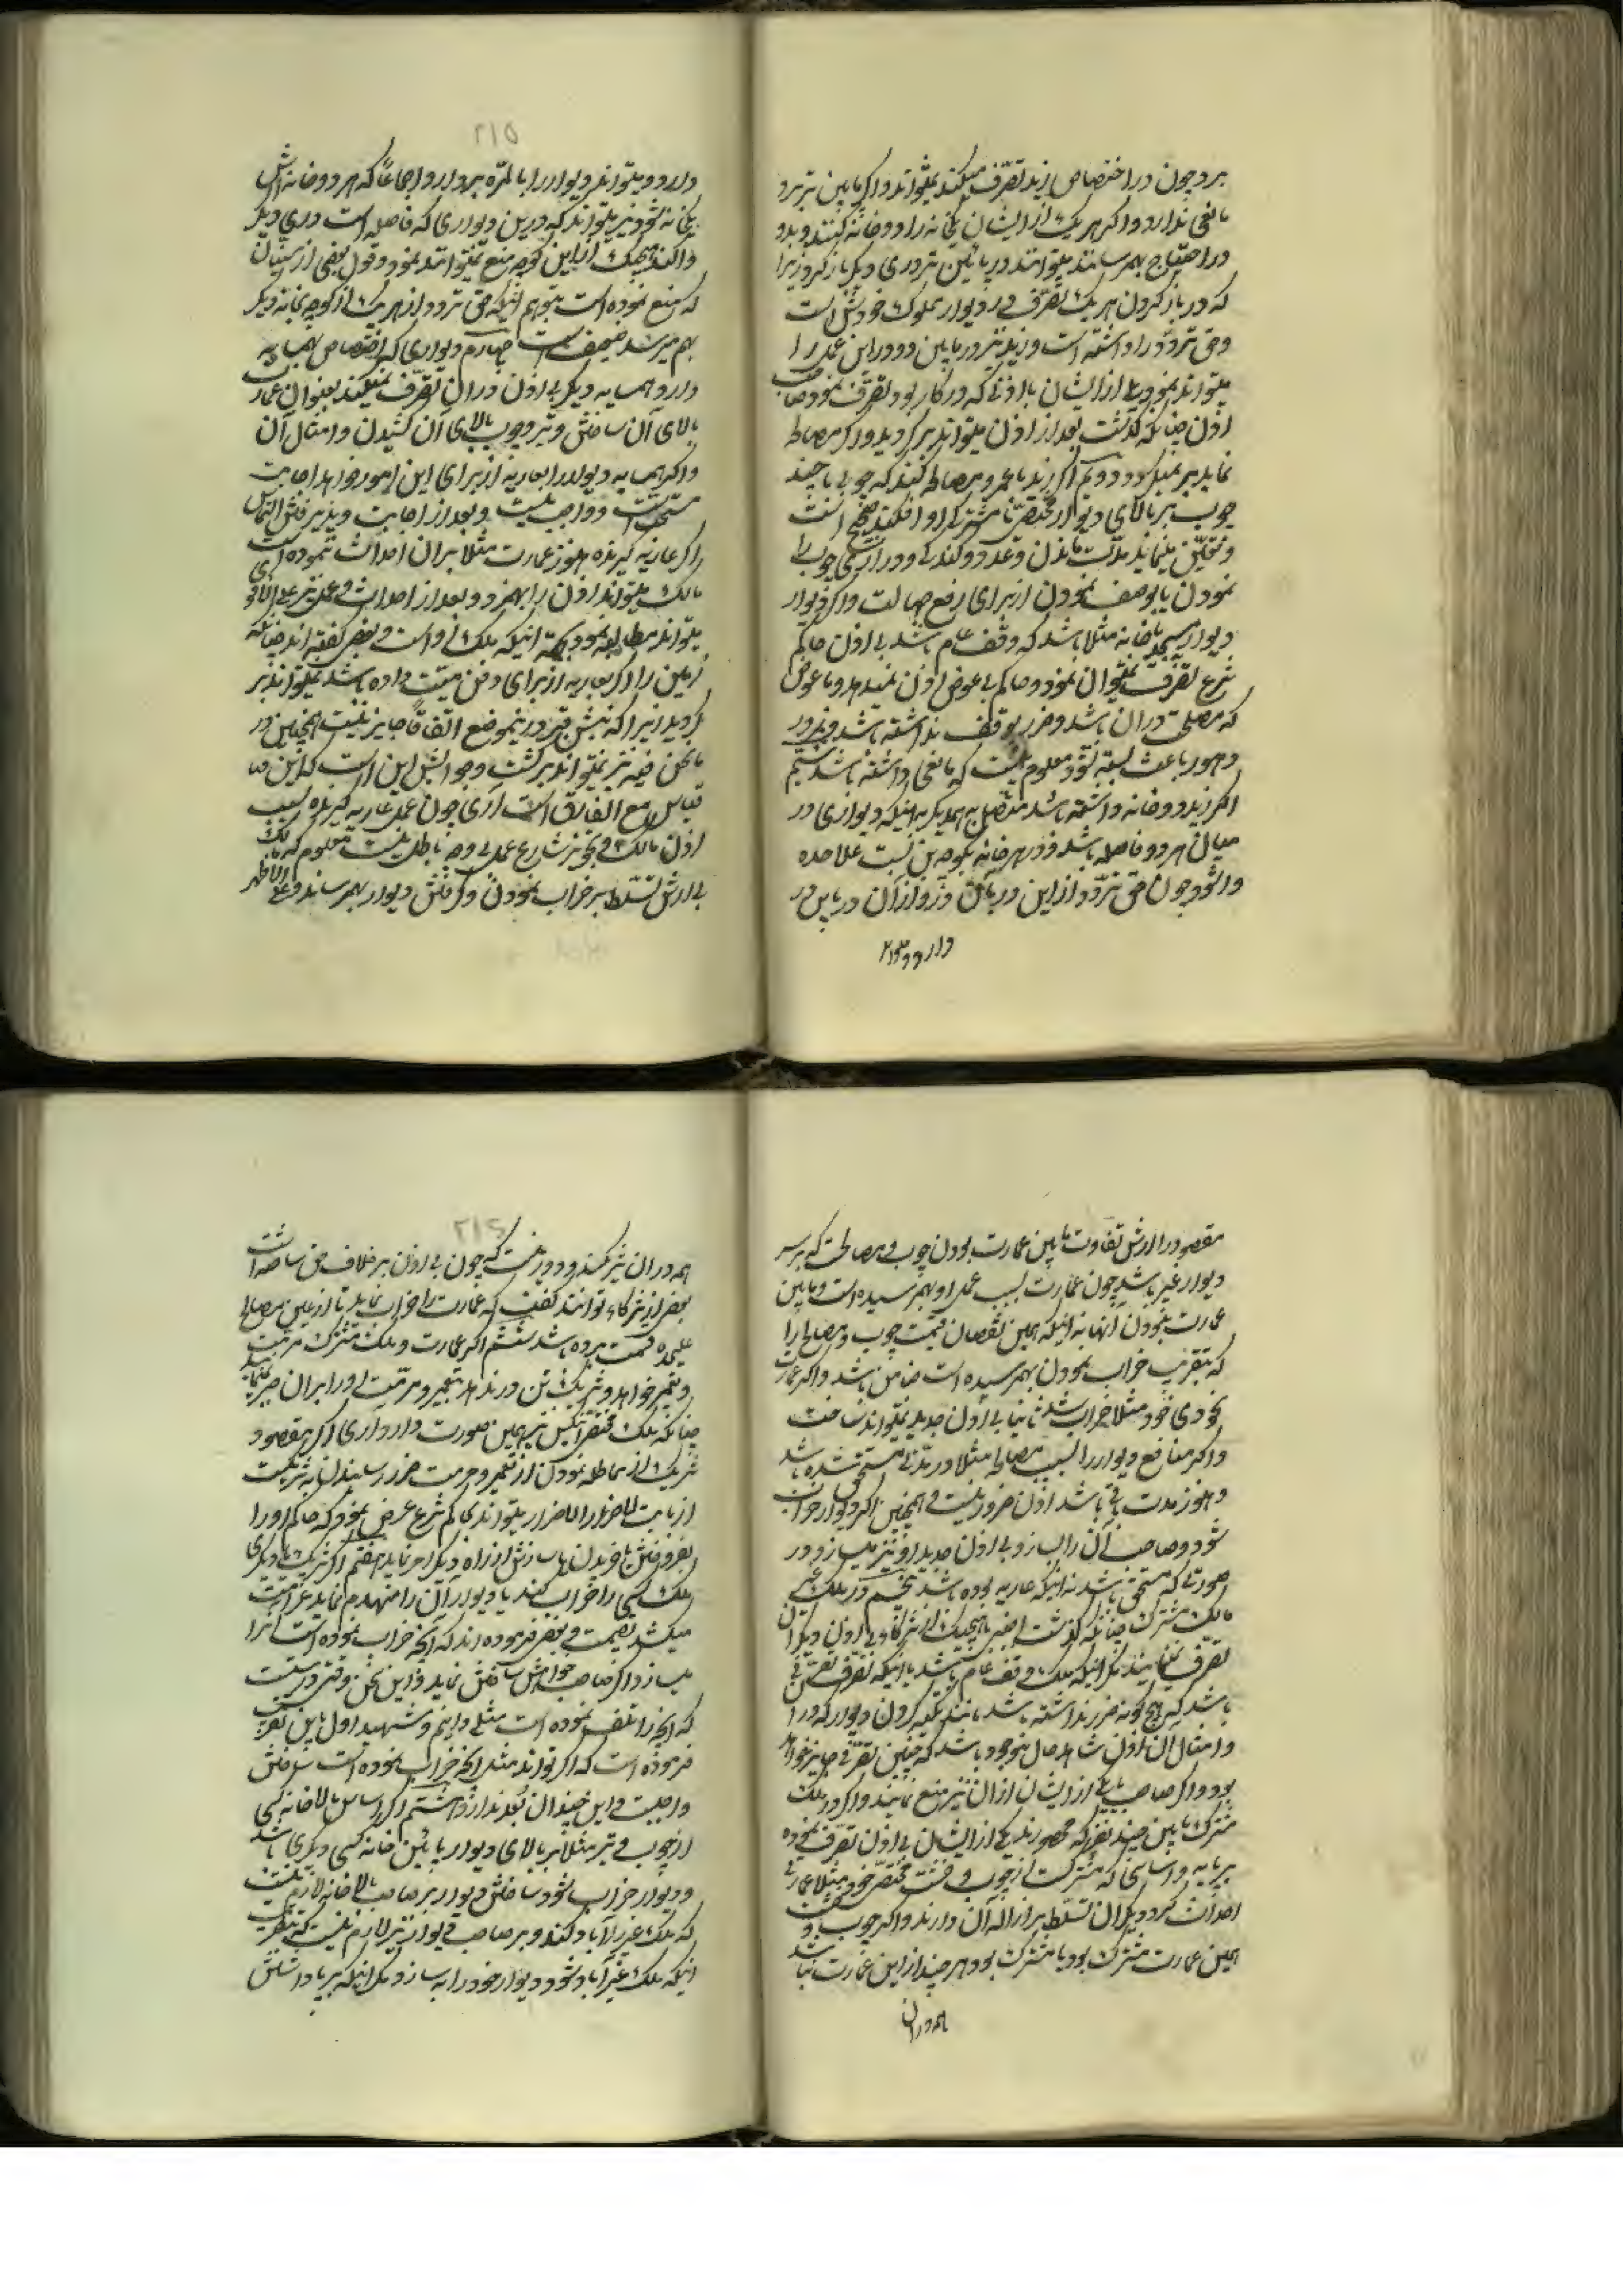 برد چون در اختصاص زید تصرف میکند نمیتواند و اگر پایین تر برد
مانعی ندارد و اگر هر یک از ایشان یکخانه را دو خانه کنند و بدو
در احتیاج بهم رسانند میتوانند در پائین تر دری دیگر باز کرد زیرا
که در باز کردن هر یک تصرف در دیوار مملوک خودش است
وحق تردد را داشته است و زید نیز در ما بین دو در این عمل را
میتواند نمود یا از ایشان باذنی که در کار بود تصرف نمود صاحب
اذن چنانکه گذشت بعد از اذن میتواند برگردید و اگر مصالحه
نماید بر نمیگردد دویم اگر زید با عمرو مصالحه کند که چوبی یا چند
چوب بر بالای دیوار مختص یا مشترک او افکند صحیح است
و تعیین مینماید مدت ماندن و عدد و کندگی و درازی چوب را
نمودن یا بوصف نمودن از برای رفع جهالت و اگر دیوار
دیوار مسجد یا خانه مثلا باشد که وقف عام باشد بی اذن حاکم
شرع تصرف نمیتوان نمود و حاکم بی عوض اذن نمیدهد و با عوض
که مصلحت در آن باشد و ضرر بوقف نداشته باشد و بمرور
دهور باعث شبهه نشود معلوم نیست که مانعی داشته باشد سیم
اگر زید دو خانه داشته باشد متصل به همدیگر به اینکه دیواری در
میان هر دو فاصله باشد و در هر خانه بکوچه بن بست علاحده
وا شود چون حق تردد از این در بآن و از آن در باین در
دارد و میتواند
۲۱۵
دارد و میتواند دیوار را بالمره بردارد اجماعا که هر دو خانه اش
یکخانه شود و نیز میتواند که در این دیواری که فاصله است دری دیگر
وا کند هیچیک از اهل این کوچه منع نمیتوانند نمود و قول بعضی از سنیان
که منع نموده است بتوهم اینکه حق تردد از هر یک از کوچه بخانه دیگر
بهم میرسد ضعیف است چهارم دیواری که اختصاص بهمسایه
دارد همسایه دیگر بی اذن در آن تصرف نمیکند بعنوان عمارت
بالای آن ساختن و تیر و چوب ببالای آن کشیدن و امثال آن
و اگر همسایه دیوار را بعاریه از برای این امور خواهد اجابت
مستحب است و واجب نیست و بعد از اجابت و پذیرفتن التماس
اگر عاریه گیرنده هنوز عمارت مثلا بر آن احداث ننموده است
مالک میتواند اذن را بهم زد و بعد از احداث و عمل نیز علی الاقوی
میتواند مطالبه نمود بجهة اینکه ملک او است و بعضی گفته اند چنانکه
زمین را اگر بعاریه از برای دفن میت داده باشد نمیتواند بر
گردید زیرا که نبش قبر در اینموضع اتفاقا جایز نیست همچنین در
ما نحن فیه نیز نمیتواند برگشت و جوابش این است که این
قیاس مع الفارق است آری چون عمل عاریه گیرنده بسبب
اذن مالک و تجویز شارع عمل بی وجه باطل نیست معلوم که مالک
بی ارش تسلط بر خراب نمودن و گرفتن دیوار بهم رساند و علی الاظهر
مقصود از ارش تفاوت ما بین عمارت بودن چوب و مصالح که بر سر
دیوار غیر باشد چون عمارت بسبب عمل او بهم رسیده است و ما بین
عمارت نبودن آنها نه اینکه همین نقصان قیمت چوب و مصالح را
که بتقریب خراب نمودن بهم رسیده است ضامن باشد و اگر عمارت
بخودی خود مثلا خراب شد ثانیا بی اذن جدید نمیتواند ساخت
و اگر منافع دیوار را بسبب مصالحه مثلا در مدتی مستحق شده باشد
و هنوز مدت باقی باشد اذن ضرور نیست و همچنین اگر دیوار خراب
شود و صاحب آن را بسازد بی اذن جدید او نیز میسازد در
صورتی که مستحق باشد نه اینکه عاریه بوده باشد پنجم در ملک غیر
مالک مشترک چنانکه گذشت هیچیک از شرکاء بی اذن دیگران
تصرف نمینمایند مگر اینکه ملک وقف عام باشد یا اینکه تصرف
باشد که هیچ گونه ضرر نداشته باشد مانند تکیه کردن دیوار که در آن
و امثال آن اذن شاهد حال موجود باشد که چنین تصرفی جایز خواهد
بود و اگر صاحب یا یکی از ایشان از آن نیز منع نمایند و اگر در ملک
مشترک ما بین چند نفر که محصورند یکی از ایشان بی اذن تصرف نموده
بر پایه و اساسی که مشترک است از چوب و خشت مختص خود مثلا عمارتی
احداث کرد دیگران تسلط بر ازاله آن دارند و اگر چوب و خشت
همین عمارت مشترک بود یا مشترک بود هر چند از این عمارت نباشد
هم در آن
۲۱۶
هم در آن نیز گفته و دور نیست که چون بی اذن بر خلاف حق ساخته است
بعضی از شرکاء توانند گفت که عمارت را خراب نماید تا از عین مصالح
علیحده قسمت برده باشد ششم اگر عمارت و ملک مشترک مرمت
و تعمیر خواهد و شریک تن در ندهد بتعمیر و مرمت او را بر آن جبر نمینماید
چنانکه ملک مختص آنکس نیز همین صورت دارد آری اگر مقصود
شریک از مماطله نمودن از تعمیر و مرمت ضرر رسانیدن به شریک است
از بابت لا ضرر و لا ضرار میتواند بحاکم شرع عرض نمود که حاکم او را
بفروختن یا خریدن یا سازش از راه دیگر امر نماید هفتم اگر شریک یا دیگری
ملک کسی را خراب کند یا دیوار آن را منهدم نماید غرامت
میکشد بقیمت و بعضی فرموده اند که آنچه خراب نموده است آنرا
میسازد اگر صاحب خواهش ساختن نماید و این سخن وقتی درست
که آنچه را تلف نموده است مثلی دانیم و شهید اول باین تقریب
فرموده است که اگر تواند مثل آنچه خراب نموده است ساختن
واجبست و این چندان بعد ندارد هشتم اگر اساس بالاخانه کسی
از چوب و تیر مثلا بر بالای دیوار پائین خانه کسی دیگری باشد
و دیوار خراب شود ساختن دیوار بر صاحب بالاخانه لازم نیست
که ملک غیر را آباد کند و بر صاحب دیوار نیز لازم نیست که بتقریب
اینکه ملک غیر آباد شود دیوار خود را بسازد مگر اینکه برپا داشتن